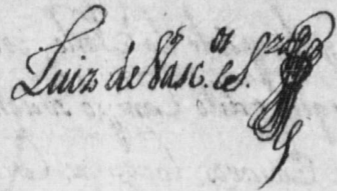 Luiz de Vasc.os e S.